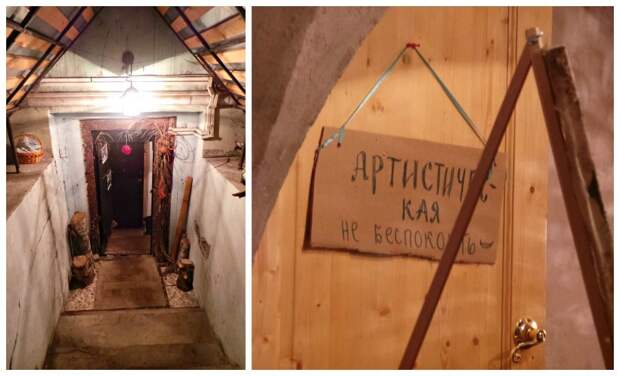 АРТИСТИЧЕС
КАЯ
НЕ БЕСПОКОИТЬ